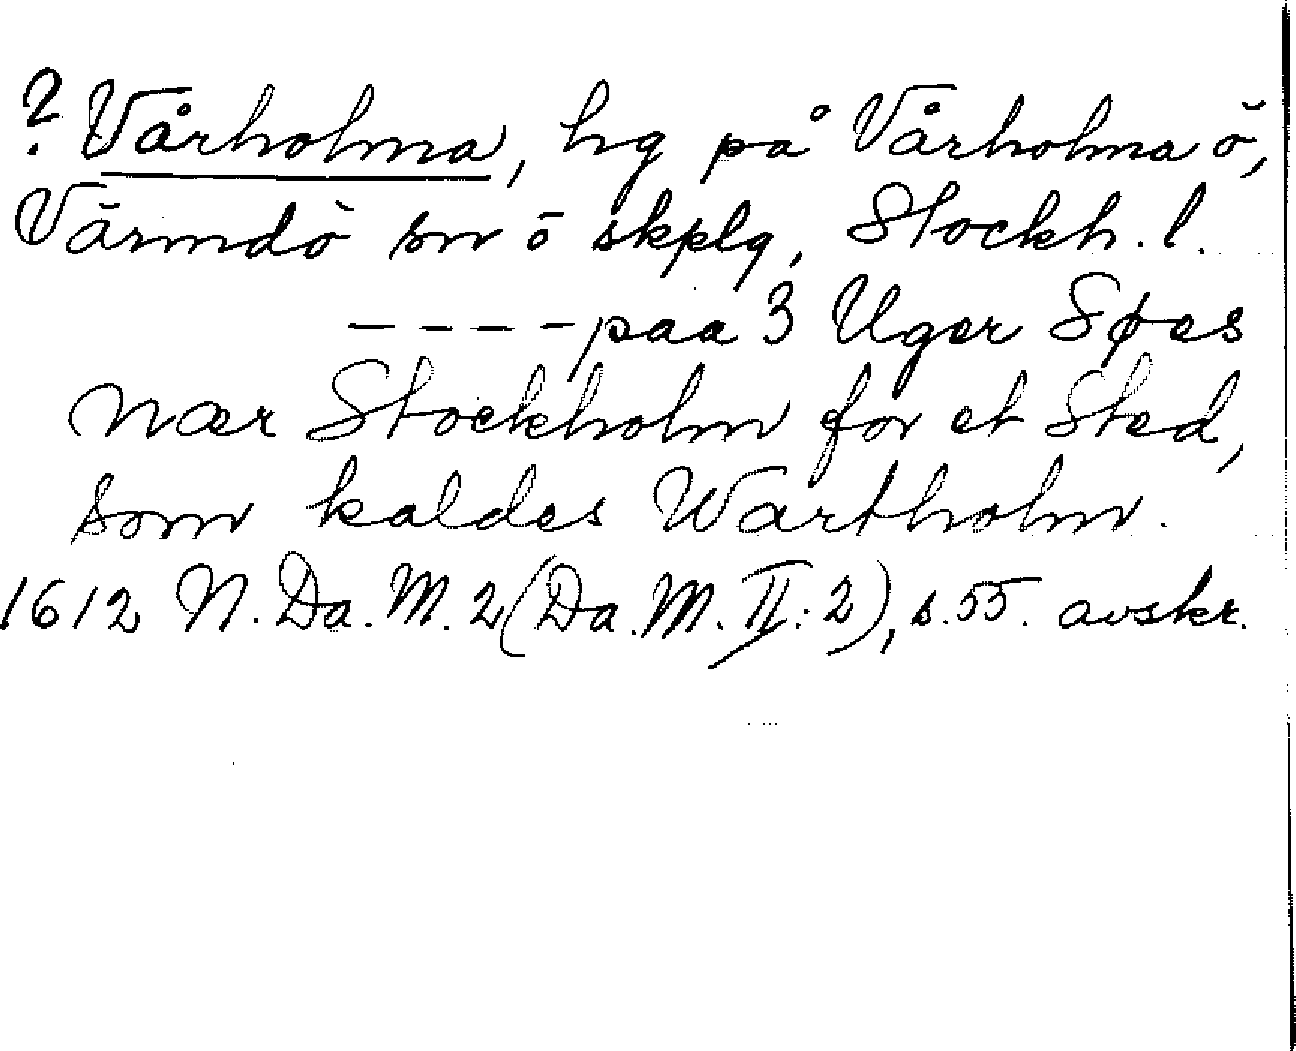 ? Vårholma, hg på Vårholma ö,
Värmdö sn o skplg, Stockh. l.
- - - - paa 3 Uger Søes
nær Stockholm for et Sted,
som kaldes Wartholm.
1612 N. Da. M. 2 (Da. M. II: 2), s. 55. avskr.